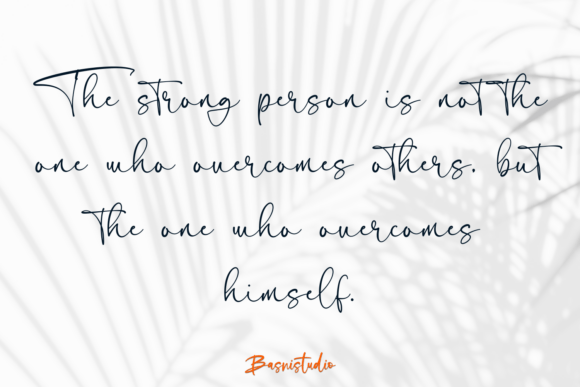 The strong person is not the
one who overcomes others. but
the one who overcomes
himself.
Basnistudio